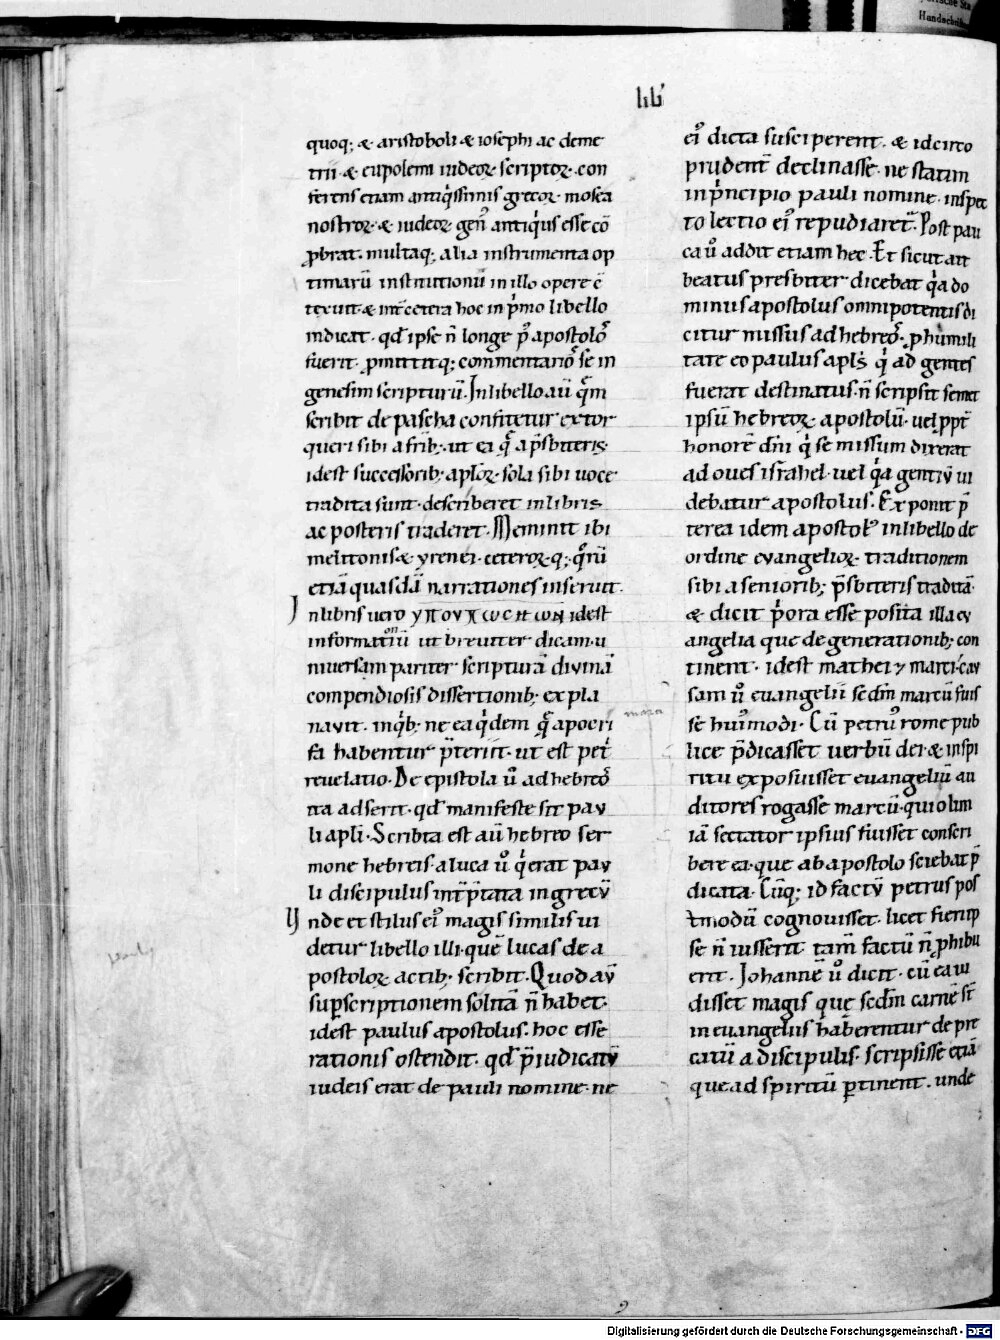 lib'
quoq; & aristoboli & iosephi ac deme
trii & eupolemi iudeoꝝ scriptoꝝ con
ferens etiam antiq̇ssimis grecoꝝ mosea
nostroꝝ & iudeoꝝ gen᷒ antiq̇us esse cō
ꝓbrat. multaq; alia instrumenta op
timarū institutionū in illo opere cō
texuit. & int̄ cetera hoc in p̍mo libello
indicat. qd̄ ipse n̄ longe p᷒ apostolo᷒
fuerit. ꝓmittitq; commentario᷒ se in
genesim scripturū. In libello aū quē
scribit de pascha confitetur extor
queri sibi a frib; ut ea q̄ a p̄sbiteris
idest successorib; aploꝝ sola sibi uoce
tradita sunt. describeret in libris.
ac posteris traderet. Meminit ibi
melitonis & yrenei. ceteroꝝq; quoꝝ
etiā quasdā narrationes inseruit.
In libris uero ΥΠΟΥΠωCΕωΝ idest
informationū ut breuiter dicam. u
niuersam pariter scripturā diuinā
compendiosis dissertionib; expla
nauit. inq̇b; ne ea q̇dem q̄ apocri
fa habentur p̄teriit. ut est pet̍
reuelatio. De epistola u᷒ ad hebreo᷒
ita adserit. qd̄ manifeste sit pau
li apli. Scribta est aū hebreo ser
mone hebreis. a luca u᷒ q̇ erat pau
li discipulus int̄p̄tata in grecū
Vnde et stilus ei᷒ magis similis ui
detur libello illi. quē lucas de a
postoloꝝ actib; scribit. Quod aū
sup̄scriptionem solitā n̄ habet.
idest paulus apostolus. hoc esse
rationis ostendit. qd̄ p̄iudicatū
iudeis erat de pauli nomine. ne
ei᷒ dicta susciperent. & idcirco
prudent̄ declinasse. ne statim
in p̍ncipio pauli nomine. inspec
to lectio ei᷒ repudiaret᷒. Post pau
ca u᷒ addit etiam hec. Et sicut ait
beatus presbiter dicebat q̍a do
minus apostolus omnipotentis di
citur missus ad hebreo᷒. ꝓ humili
tate eo paulus apls̄ q̍ ad gentes
fuerat destinatus. n̄ scripsit semet
ipsū hebreoꝝ apostolū. uel ppt̄
honorē dn̄i q̍ se missum dixerat
ad oues isrāhel. uel q̍a gentiū ui
debatur apostolus. Exponit p̄
terea idem apostol᷒ in libello de
ordine euangelioꝝ traditionem
sibi a seniorib; p̄sbiteris traditā.
& dicit p̍ora esse posita illa eu
angelia que de generationib; con
tinent. idest mathei ⁊ marci. cau
sam u᷒ euangelii scdm̄ marcū fuis
se hui᷒modi. Cū petru᷒ rome pub
lice p̄dicasset uerbū dei. & inspi
ritu exposuisset euangeliū. au
ditores rogasse marcū. qui olim
iā sectator ipsius fuisset conscri
bere ea. que ab apostolo sciebat p̄
dicata. Cūq; id factū petrus pos
tmodū cognouisset. licet fieri ip
se n̄ iusserit. tam̄ factū n̄ ꝓhibu
erit. Johannē u᷒ dicit. cū ea ui
disset magis que scdm̄ carnē st̄
in euangeliis haberentur de pre
catū a discipulis. scripsisse etiā
que ad spiritū ꝑtinent. unde
Handschriften
Digitalisierung gefördert durch die Deutsche Forschungsgemeinschaft - DFG